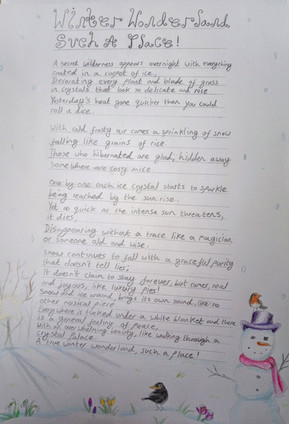 Winter Wonderland
Such A Place!
A secret wilderness appears overnight with everything
coated in a carpet of ice,
Decorating every plant and blade of grass
in crystals that look so delicate and nice
Yesterday's heat gone quicker than you could
roll a dice.
With cold frosty air comes a sprinkling of snow
falling like grains of rice
Those who hibernated are glad, hidden away
somewhere are cosy mice
One by one each ice crystal starts to sparkle
being reached by the sun rise.
Yet as quick as the intense sun threatens,
it dies,
Disappearing without a trace like a magician,
or someone old and wise.
Snow continues to fall with a graceful purity
that doesn't tell lies,
It doesn't claim to stay forever, but comes, real
and joyous, like luxury pies!
Snow and ice wound, brings its own sound, like no
other musical piece
Everywhere is tucked under a white blanket and there
is a general feeling of peace,
With all over whelming beauty, like walking through a
crystal palace
A true winter wonderland, such a place!